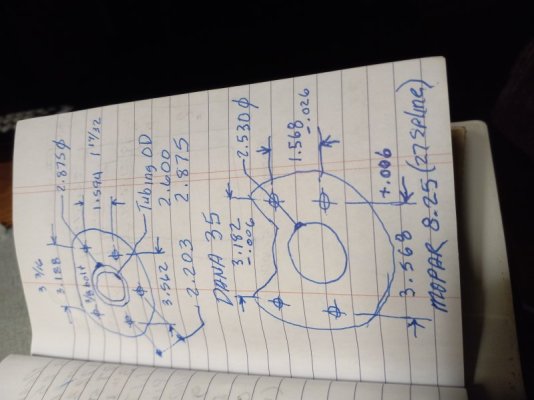 3 3/16
3.188 2.875 Ø
3/8 bolt 1.594 1 19/32
Tubing OD
3.562 2.600
2.203 2.875
DANA 35
3.182 2.530 Ø
-.006
1.568
-.026
3.568 +.006
MOPAR 8.25 (27 Spline)